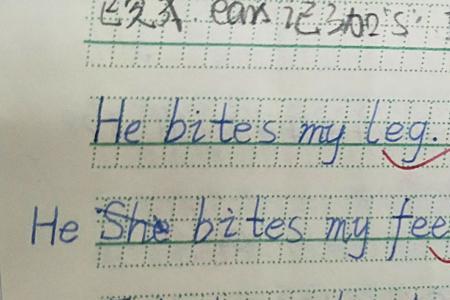 ears 记得加's'.
He bites my leg.
He She bites my fee